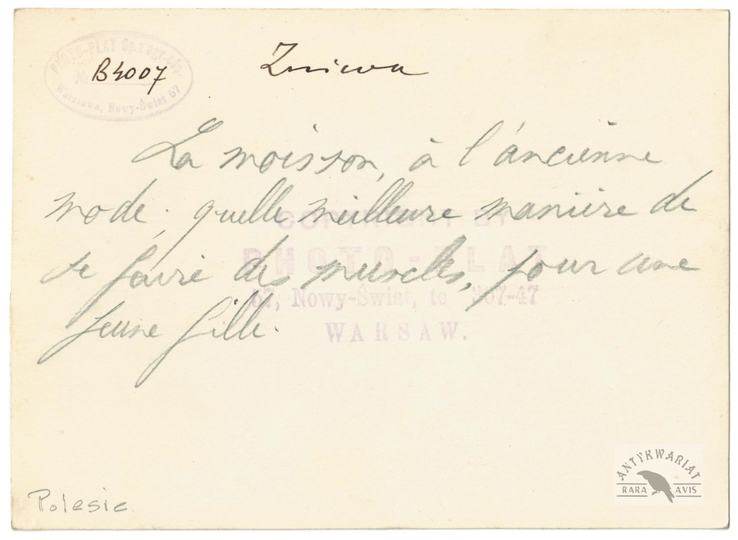 B4007
Żniwa
La moisson, à l'ancienne
mode. quelle meilleure manière de
se faire des muscles, pour une
jeune fille.
COPYRIGHT BY
PHOTO-PLAT
67, Nowy-Świat, te 367-47
WARSAW.
Warszawa, Nowy-Świat 67
Polesie
ANTYKWARIAT
RARA AVIS